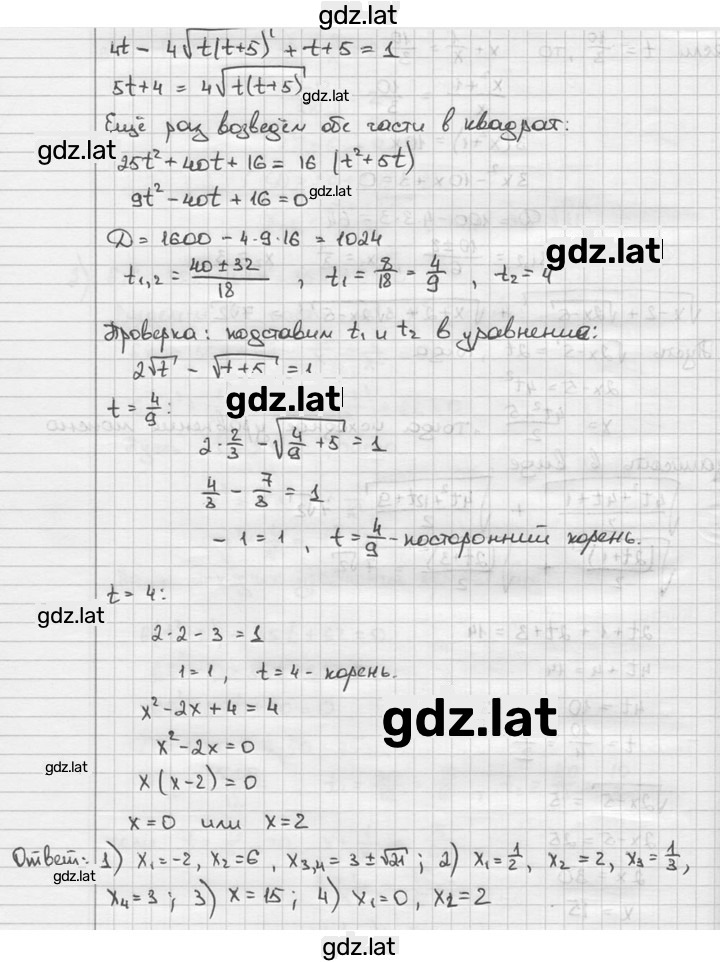 gdz.lat
4t - 4√(t(t+5)) + t + 5 = 1
5t + 4 = 4√(t(t+5))
gdz.lat
Ещё раз возведём обе части в квадрат:
gdz.lat
25t² + 40t + 16 = 16 (t² + 5t)
9t² - 40t + 16 = 0
gdz.lat
D = 1600 - 4·9·16 = 1024
gdz.lat
t₁,₂ = (40 ± 32)/18 , t₁ = 8/18 = 4/9 , t₂ = 4
Проверка: подставим t₁ и t₂ в уравнение:
2√t - √(t+5) = 1
gdz.lat
t = 4/9:
2 · 2/3 - √(4/9 + 5) = 1
4/3 - 7/3 = 1
- 1 = 1 , t = 4/9 - посторонний корень.
t = 4:
gdz.lat
2·2 - 3 = 1
1 = 1 , t = 4 - корень.
x² - 2x + 4 = 4
gdz.lat
x² - 2x = 0
gdz.lat
x (x - 2) = 0
x = 0 или x = 2
Ответ: 1) x₁ = -2, x₂ = 6 , x₃,₄ = 3 ± √21 ; 2) x₁ = 1/2 , x₂ = 2, x₃ = 1/3 ,
gdz.lat
x₄ = 3 ; 3) x = 15 ; 4) x₁ = 0 , x₂ = 2
gdz.lat